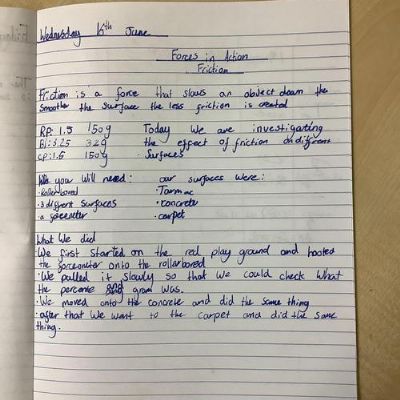 Wednesday 16th June
Forces in Action
Friction
Friction is a force that slows an obdect down the
smoother the surface the less friction is created
RP: 1.5 150g Today we are investigating
Bl: 3.25 32g the effect of friction on different
CP: 1.5 150g surfaces
you will need: our surfaces were:
·Rollarbored ·Tarmac
·3 different surfaces ·concrete
·a forcemeter ·carpet
What We did
·We first started on the red play ground and hooted
the forcemeter onto the rollarbored
·We pulled it slowly so that we could check What
the and gram was.
·We moved onto the concrete and did the same thing
·after that We want to the carpet and did the same
thing.